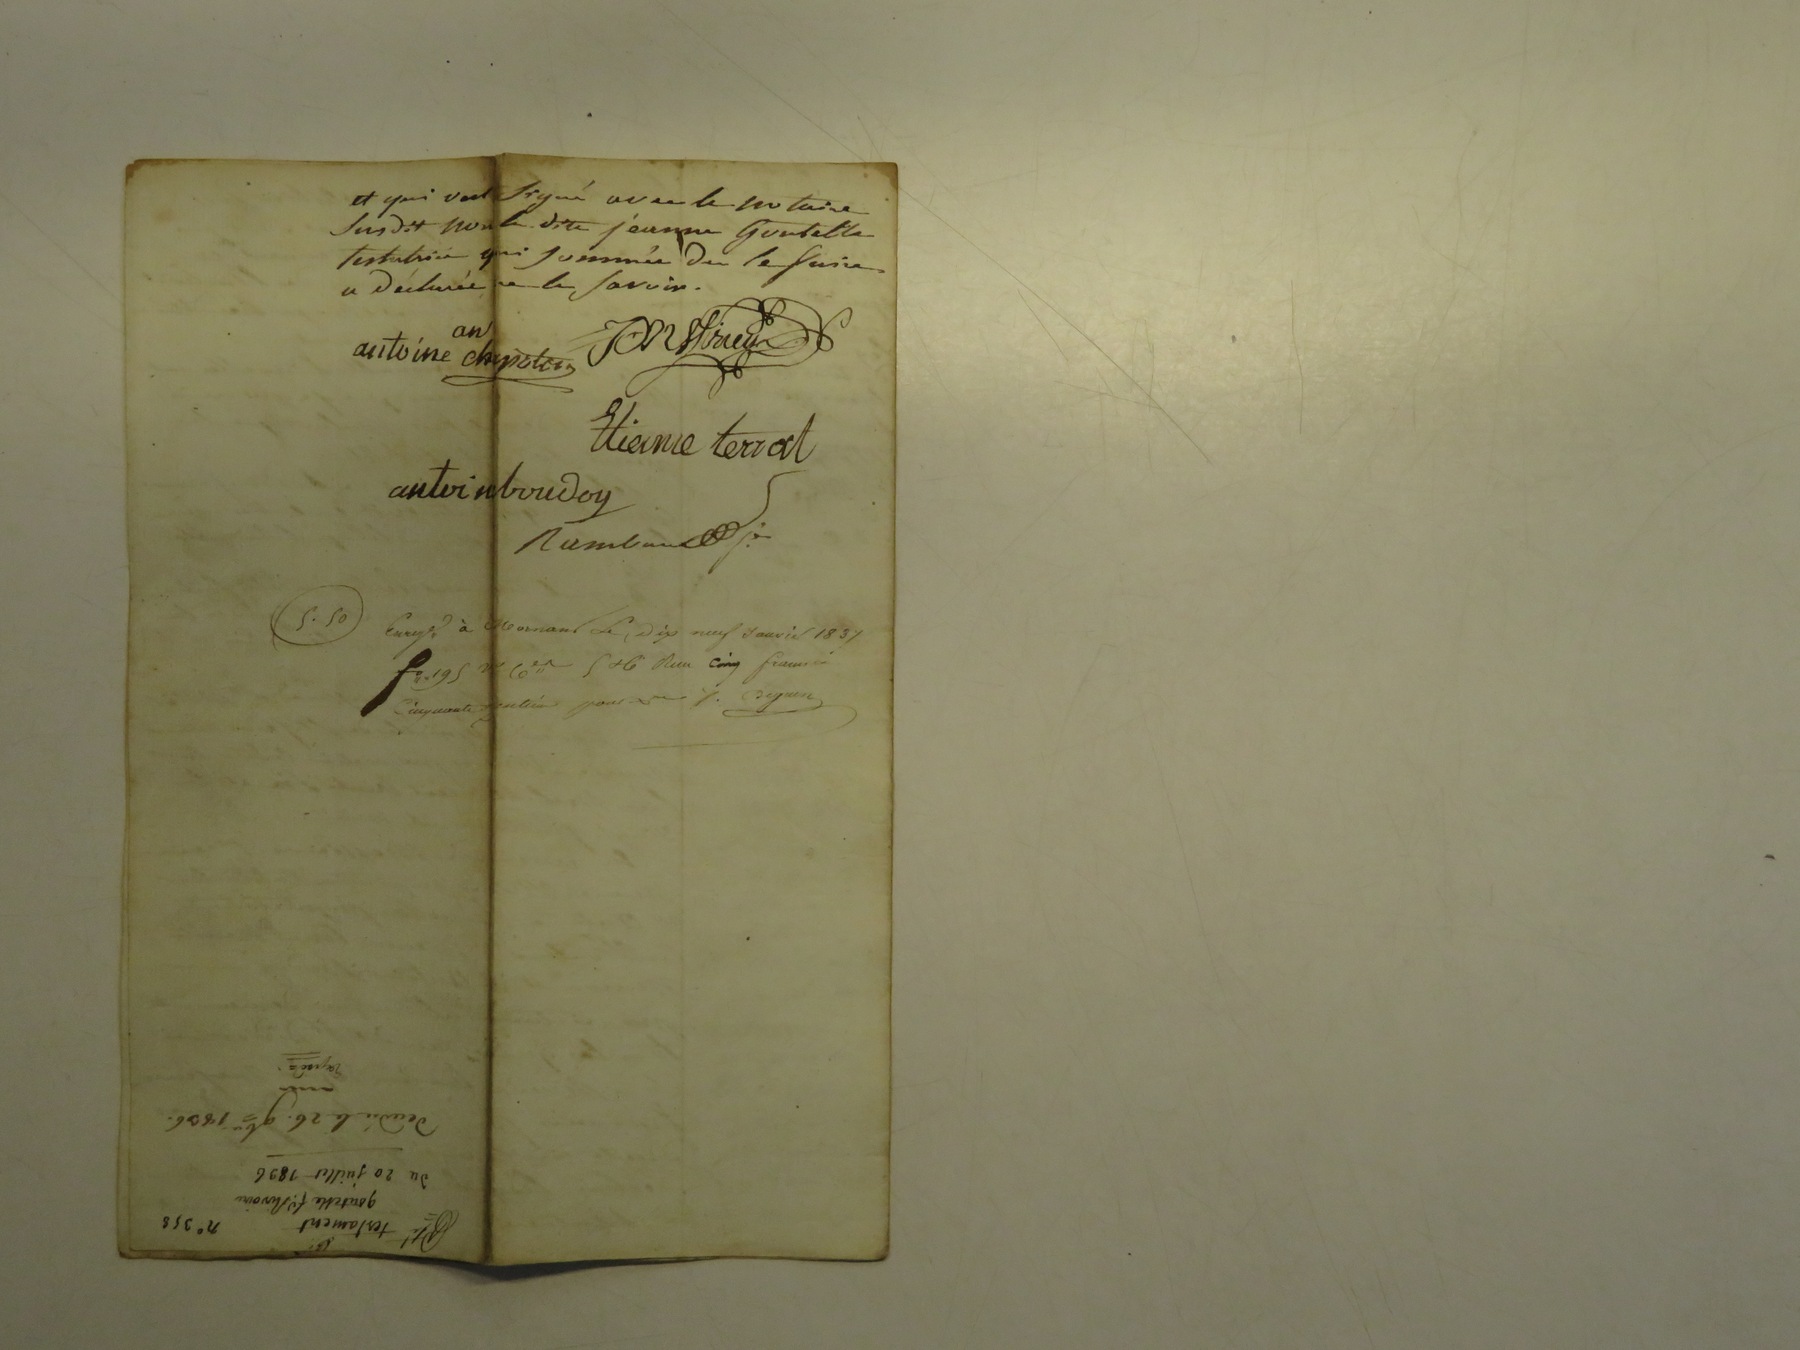 et qui ont signé avec le notaire
susdit non la dite jeanne Goutelle
testatrice qui sommée de le faire
a déclarée ne le savoir.
an
antoine chapotin
Etienne terrat
antoin boudoy
Rambaud
5. 50
Enregt à Mornant Le dix neuf Janvier 1837
fo 195 Reçu cinq francs
Cinquante centimes pour
n° 358
testament
goutelle
du 20 juillet 1836
Décédée le 26. 9bre 1836.